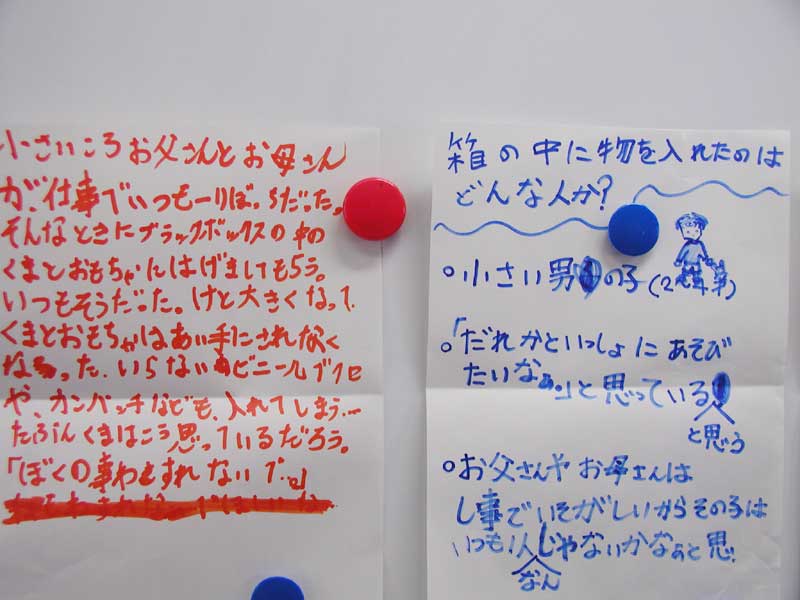 小さいころお父さんとお母さん
が、仕事でいつも一りぼっちだった。
そんなときにブラックボックスの中の
くまとおもちゃにはげましてもらう。
いつもそうだった。けど大きくなって、
くまとおもちゃはあい手にされなく
なった。いらないビニールブクロ
や、カンバッチなども、入れてしまう…
たぶんくまはこう思っているだろう。
「ぼくの事わすれないで。」
箱の中に物を入れたのは
どんな人か?
○小さい男の子(2年生)
○「だれかといっしょにあそび
たいなぁ。」と思っている
と思う
○お父さんやお母さんは
し事でいそがしいからその子は
いつも1人じゃないかなぁと思
なん